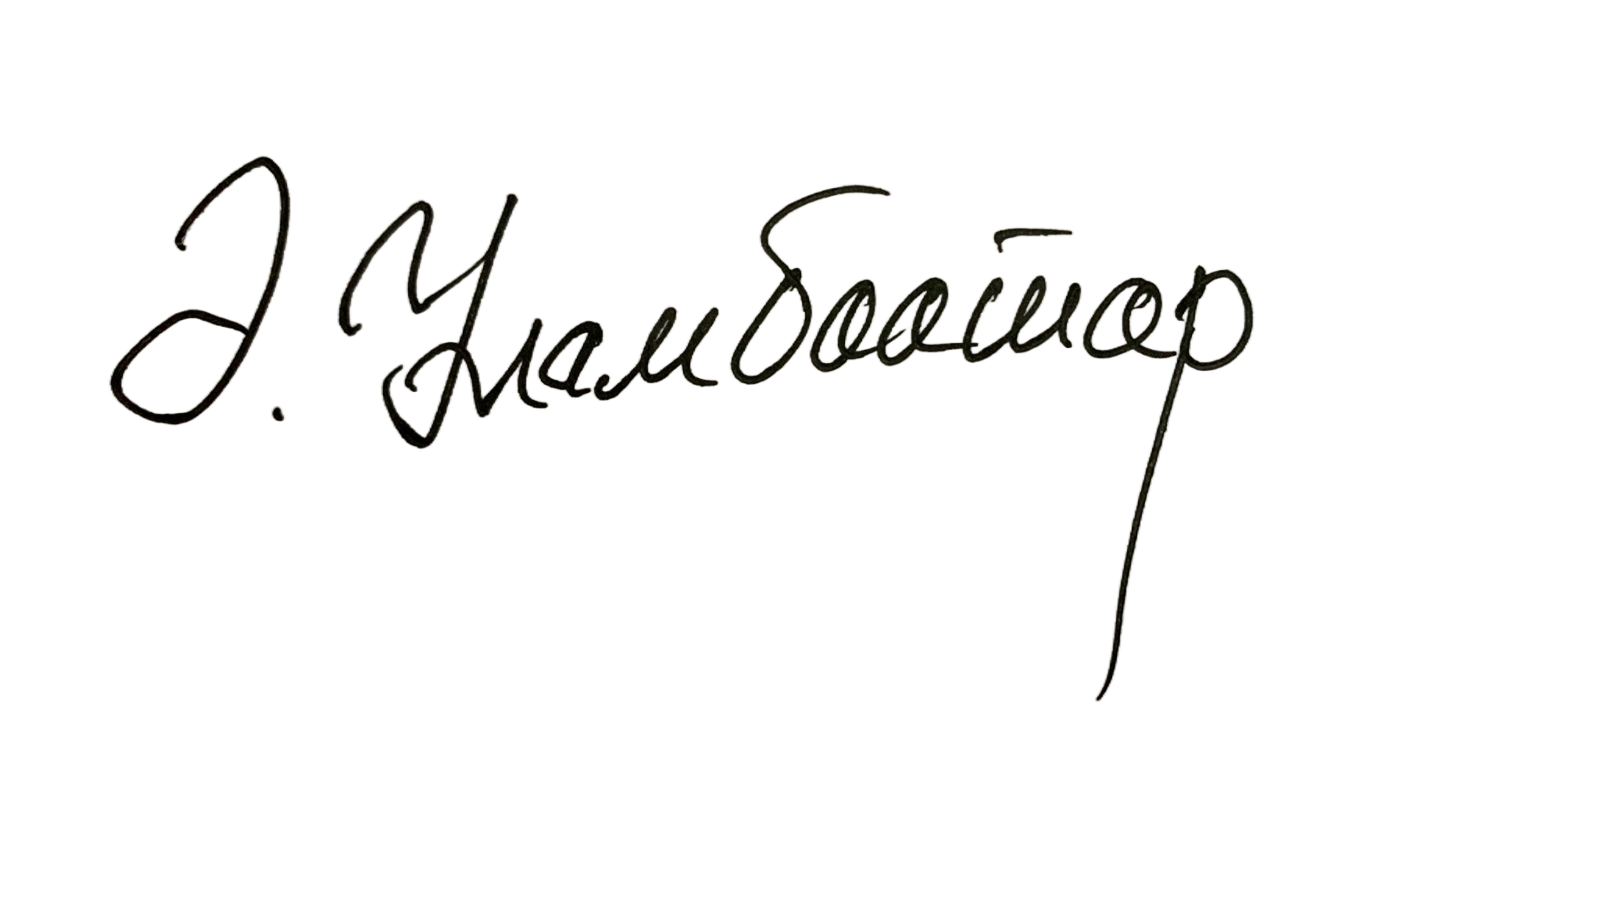 Э. Уламбаатар